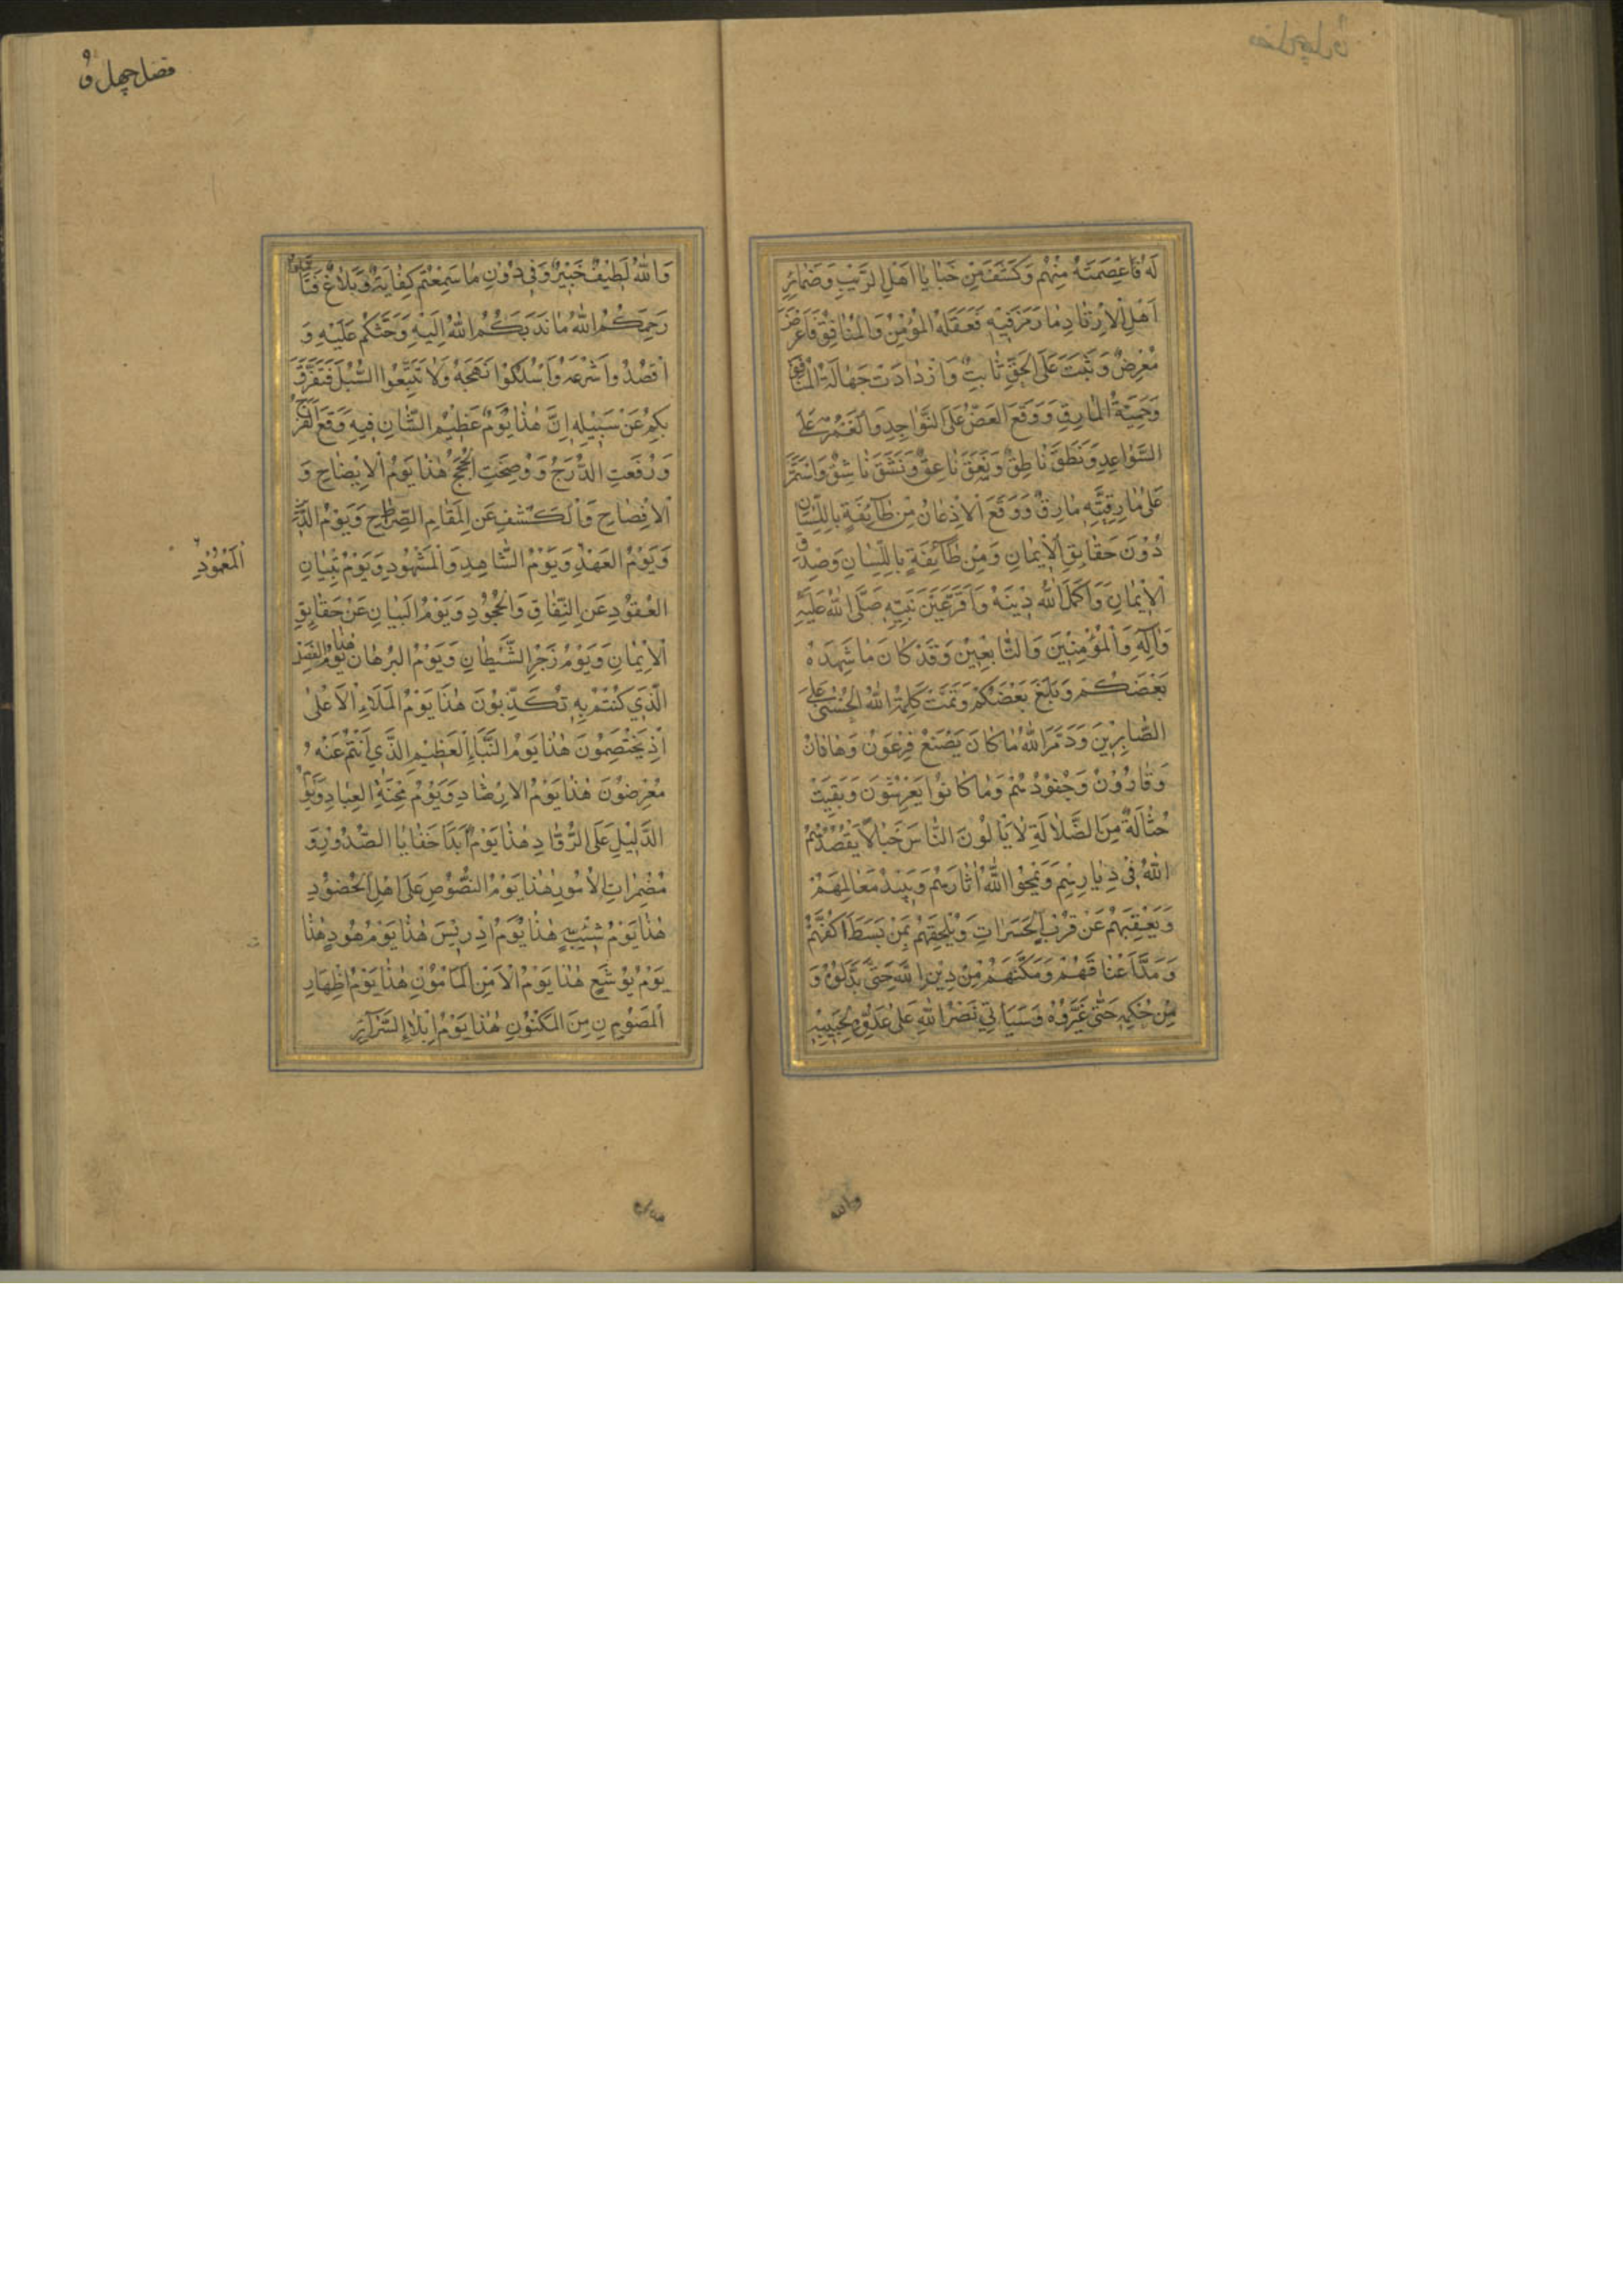 لَهُ فَاعِصَمَتَهُ مِنْهُمْ وَكَشَفَ مِنْ خَبَايَا اَهْلِ الرَّيْبِ وَضَمَائِرِ
اَهْلِ الْاِرْتِدَادِ مَا رَمَزَ فِيهِ فَعَقَلَهُ الْمُؤْمِنُ وَالْمُنَافِقُ فَاَعْرَضَ
مُعْرِضٌ وَثَبَتَ عَلَى الْحَقِّ ثَابِتٌ وَازْدَادَتْ جَهَالَةُ الْمُنَافِقِ
وَحَمِيَّةُ الْمَارِقِ وَوَقَعَ الْعَضُّ عَلَى النَّوَاجِدِ وَالْغَمْزُ عَلَى
السَّوَاعِدِ وَنَطَقَ نَاطِقٌ وَنَعَقَ نَاعِقٌ وَنَشَقَ نَاشِقٌ وَاسْتَمَرَّ
عَلَى مَارِقِيَّتِهِ مَارِقٌ وَوَقَعَ الْاِذْعَانُ مِنْ طَائِفَةٍ بِاللِّسَانِ
دُوْنَ حَقَايِقِ الْاِيْمَانِ وَمِنْ طَائِفَةٍ بِاللِّسَانِ وَصِدْقِ
الْاِيْمَانِ وَاَكْمَلَ اللهُ دِيْنَهُ وَاَقَرَّ عَيْنَ نَبِيِّهِ صَلَّى اللهُ عَلَيْهِ
وَآلِهِ وَالْمُؤْمِنِيْنَ وَالتَّابِعِيْنَ وَقَدْ كَانَ مَا شَهِدَهُ
بَعْضُكُمْ وَبَلَغَ بَعْضَكُمْ وَتَمَّتْ كَلِمَةُ اللهِ الْحُسْنٰى عَلَى
الصَّابِرِيْنَ وَدَمَّرَ اللهُ مَا كَانَ يَصْنَعُ فِرْعَوْنُ وَهَامَانُ
وَقَارُوْنُ وَجُنُوْدُهُمْ وَمَا كَانُوْا يَعْرِشُوْنَ وَبَقِيَتْ
حُثَالَةٌ مِنَ الضَّلَالَةِ لَا يَاْلُوْنَ النَّاسَ خَبَالًا يَقْصُدُهُمُ
اللهُ فِيْ دِيَارِهِمْ وَيَمْحُوا اللهُ اٰثَارَهُمْ وَيُبِيْدُ مَعَالِمَهُمْ
وَيُعْقِبُهُمْ عَنْ قُرْبٍ الْحَسَرَاتِ وَيُلْحِقُهُمْ بِمَنْ بَسَطَ اَكُفَّهُمْ
وَمَدَّ اَعْنَاقَهُمْ وَمَكَّنَهُمْ مِنْ دِيْنِ اللهِ حَتَّى بَدَّلُوْهُ وَ
مِنْ حُكْمِهِ حَتَّى غَيَّرُوْهُ وَسَيَاْتِيْ نَصْرُ اللهِ عَلَى عَدُوِّهِ لِحِيْنِهِ
والله
فضل چهل و
وَاللهُ لَطِيْفٌ خَبِيْرٌ وَفِيْ دُوْنِ مَا سَمِعْتُمْ كِفَايَةٌ وَبَلَاغٌ فَتَاَمَّلُوْا
رَحِمَكُمُ اللهُ مَا نَدَبَكُمُ اللهُ اِلَيْهِ وَحَثَّكُمْ عَلَيْهِ وَ
اقْصُدُوا شَرْعَهُ وَاسْلُكُوْا نَهْجَهُ وَلَا تَتَّبِعُوا السُّبُلَ فَتَفَرَّقَ
بِكُمْ عَنْ سَبِيْلِهِ اِنَّ هٰذَا يَوْمٌ عَظِيْمُ الشَّانِ فِيْهِ وَقَعَ الْفَرَجُ
وَرُفِعَتِ الدَّرَجُ وَوَضَحَتِ الْحُجَجُ هٰذَا يَوْمُ الْاِيْضَاحِ وَ
الْاِفْصَاحِ وَالْكَشْفِ عَنِ الْمَقَامِ الصِّرَاحِ وَيَوْمُ الدِّيْنِ
وَيَوْمُ الْعَهْدِ وَيَوْمُ الشَّاهِدِ وَالْمَشْهُوْدِ وَيَوْمُ تِبْيَانِ
الْمَعْهُوْدِ
الْعُقُوْدِ عَنِ النِّفَاقِ وَالْجُحُوْدِ وَيَوْمُ الْبَيَانِ عَنْ حَقَايِقِ
الْاِيْمَانِ وَيَوْمُ زَجْرِ الشَّيْطَانِ وَيَوْمُ الْبُرْهَانِ هٰذَا يَوْمُ الْفَصْلِ
الَّذِيْ كُنْتُمْ بِهِ تُكَذِّبُوْنَ هٰذَا يَوْمُ الْمَلَاءِ الْاَعْلٰى
اِذْ يَخْتَصِمُوْنَ هٰذَا يَوْمُ النَّبَاِ الْعَظِيْمِ الَّذِيْ اَنْتُمْ عَنْهُ
مُعْرِضُوْنَ هٰذَا يَوْمُ الْاِرْشَادِ وَيَوْمُ مِحْنَةِ الْعِبَادِ وَيَوْمُ
الدَّلِيْلِ عَلَى الرُّوَّادِ هٰذَا يَوْمُ اَبْدَا خَفَايَا الصُّدُوْرِ وَ
مُضْمَرَاتِ الْاُمُوْرِ هٰذَا يَوْمُ النُّصُوْصِ عَلَى اَهْلِ الْخُصُوْصِ
هٰذَا يَوْمُ شِيْثٍ هٰذَا يَوْمُ اِدْرِيْسَ هٰذَا يَوْمُ هُوْدٍ هٰذَا
يَوْمُ يُوْشَعَ هٰذَا يَوْمُ الْاَمْنِ الْمَاْمُوْنِ هٰذَا يَوْمُ اِظْهَارِ
الْمَصُوْنِ مِنَ الْمَكْنُوْنِ هٰذَا يَوْمُ اِبْلَاءِ السَّرَآئِرِ